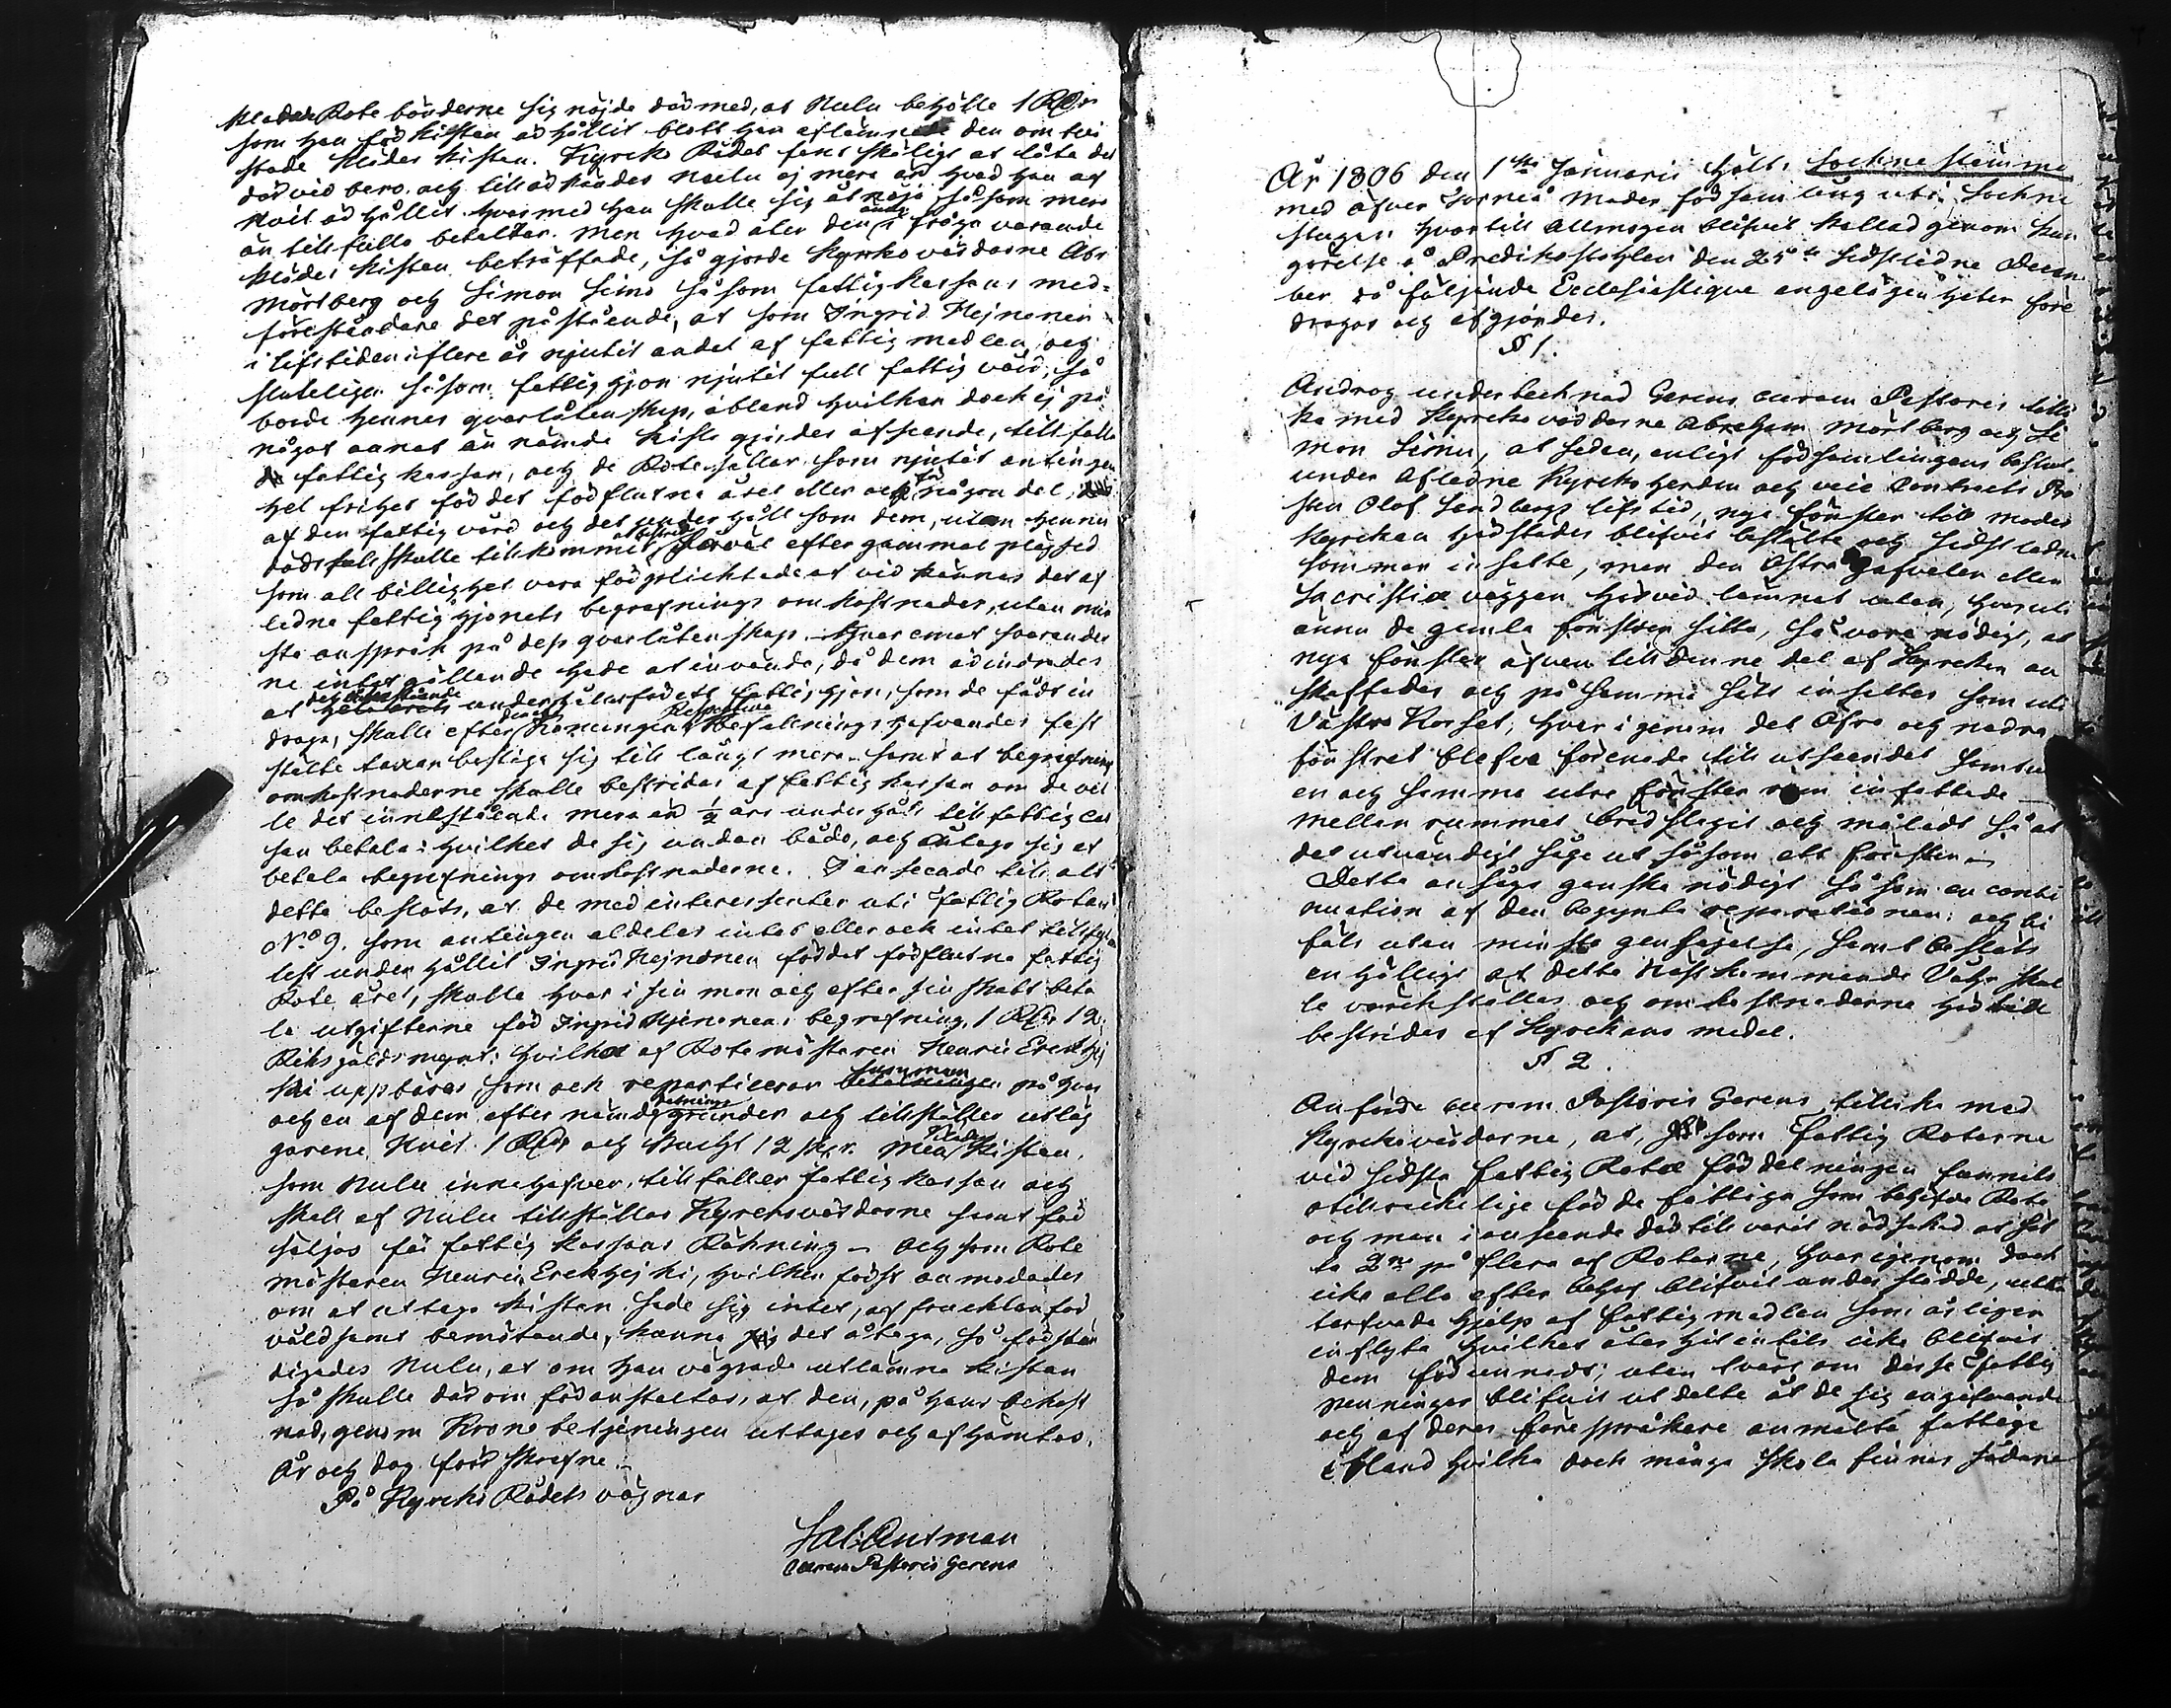 Rote bönderne sig nöjde därmed, at Nulu behölle 1 Rdr
som han för kistan ärhållit blott han aflämnade den om tvi
stade klädes kistan. Kyrcko Rådet fant skäligt at låta det
därvid bero, och till ärkändes Nulu ej mera än hvad han af
Kvit ärhållit. hvarmed han skulle sig åt nöja, så som mera
än till fullo betalter. Men hvad åter den ännu i fråga varande
klädes kistan beträffade, så gjorde Kyrkovärdarne Abr
Mörtberg och Simon Simo så som fattigkassans med-
föreståndare det påstående, at som Ingrid Hejnonen
i lifstiden i flere år njutit andel af fattig medlen, och
sluteligen så som fattighjon njutit full fattig vård, så
borde hennes qvarlåtenskap, ibland hvilken dock ej på
något annat än nämde kista gjordes afseende, tillfalla
fattig kassan, och de Rotesällar som njutit antingen
hel frihet för det förflutne året eller ock för någon del
af den fattig vård och det underhåll som dem, utan hennes
dödsfall skulle tilkommit at bestrida såväl efter gammal plägsed
som all billighet vara förpliktade at vid kännas det af
ledne fattig hjonets begrafnings omkostnader, utan min
sta anspråk på dess qvarlåtenskap. Hvaremot svarander
ne intet gällande hade at invända, då dem ärindrades
at det återstående underhållet för ett fattighjon, som de fådt in
draga, skulle efter Konungens Befalningshafvandes fast
stälte taxan bestiga sig till långt mera samt at begrafning
omkostnaderne skulle bestridas af fattig kassan om de vil
le det innestående mera än ½ års underhåll till fattig cas
san betala: hvilket de sig undan bådo, och åtogo sig at
betala begrafnings omkostnaderne. I anseende till alt
detta beslöts, at de med interessenter uti fattig Rotan
N:o 9. som antingen aldeles intet eller ock intet tillfyl
lest underhållit Ingrid Hejnonen för det förflutne fattig
Rote året, skulle hvar i sin mon och efter sin skatt beta
la utgifterne för Ingrid Hejnonens begrafning, 1 Rdr 12
Riksgälds mynt: hvilket af Rotemästaren Henric Erckhej
ki uppbäres, som ock repartiterar summan på hvar
och en af dem efter nämde grunder och tillställer utläg
garene Kvit 1 Rdr och 12 sk:r. Men klädes kistan,
som Nulu innehafver, tillfaller fattig kassan och
skall af Nulu tillställas Kyrckovärdarne samt för
säljas för fattig kassans Räkning - Och som Rote
mästaren Henric Erckhejki, hvilken först anmodades
om at uttaga kistan sade sig intet, af fruchtan för
våldsamt bemötande, kunna det åtaga, så förstän
digades Nulu, at om han vägrade utlämna kistan
så skulle därom föranstaltas, at den, på hans bekost
nad, genom Krono betjeningen uttages och afhämtas.
År och dag förr skrefne.
På Kyrcko Rådets vägnar
Curam Pastoris Gerens
År 1806 den 1sta Januarii hölts Sockne stämma
med öfver Torneå Moder församling uti Sockne
stugan hvartill Allmogen blifvit kallad genom kun
görelse i Predikostohlen den 25te sidstledne Decem
ber då följande Ecclesiastique angelägenheter före
drogos och afgjordes.
§ 1.
Androg undertecknad Gerens curam Pastoris tilli
ka med Kyrckovärdarne Abraham Mörtberg och Si
mon Simu, at sedan, enligt församlingens beslut
under Afledne Kyrckoherden och vice Contracts Pro
sten Olof Sandbergs lifstid, nya fönster till moder
Kyrckan härstädes blifvit bestälte och sidstledne
sommar insatte, men den Östra gafvelen eller
Sacristiæ väggen härvid lemnat utan, hvaruti
ännu de gamla fönstren sitta, så vore nödigt, at
nya fönster äfven till denne del af Kyrckan an
skaffades och på samma sätt insattes som uti
Västra Korset, hvarigenom det öfre och nedra
fönstret blefve förenade till utseendet samt
en och samma utra fönster ram infattade
mellan rummet brädslagit och måladt så at
det utvändigt såge ut såsom ett fönster.
Detta ansågs ganska nödigt så som en conti
nuation af den begynta reparationen: och bi
fölls utan minsta gensägelse, samt beslöts
enhälligt at detta nästkommande Våhr skul
le värckställas och omkostnaderne härtill
bestridas af Kyrckans medel.
§ 2.
Anförde curam Pastoris Gerens tillika med
Kyrckovärdarne, at, som fattig Roterne
vid sidsta fattig Rote fördelningen funnits
otillräckelige för de fattiga som behöfde Rote
och man i anseende därtill varit nödsakad at sät
ta 2ne på flera af Roterne, hvarigenom dock
icke alla efter behof blifvit understödde, utan
tarfvade hjelp af fattig medlen som årligen
inflyta hvilket åter hitintills icke blifvit
dem förunnadt; utan tvärt om desse fattig
penningar blifvit utdelte åt de sig angifvande
och af deras förespråkare anmälte fattige
ibland hvilka dock många skola finnas sådane